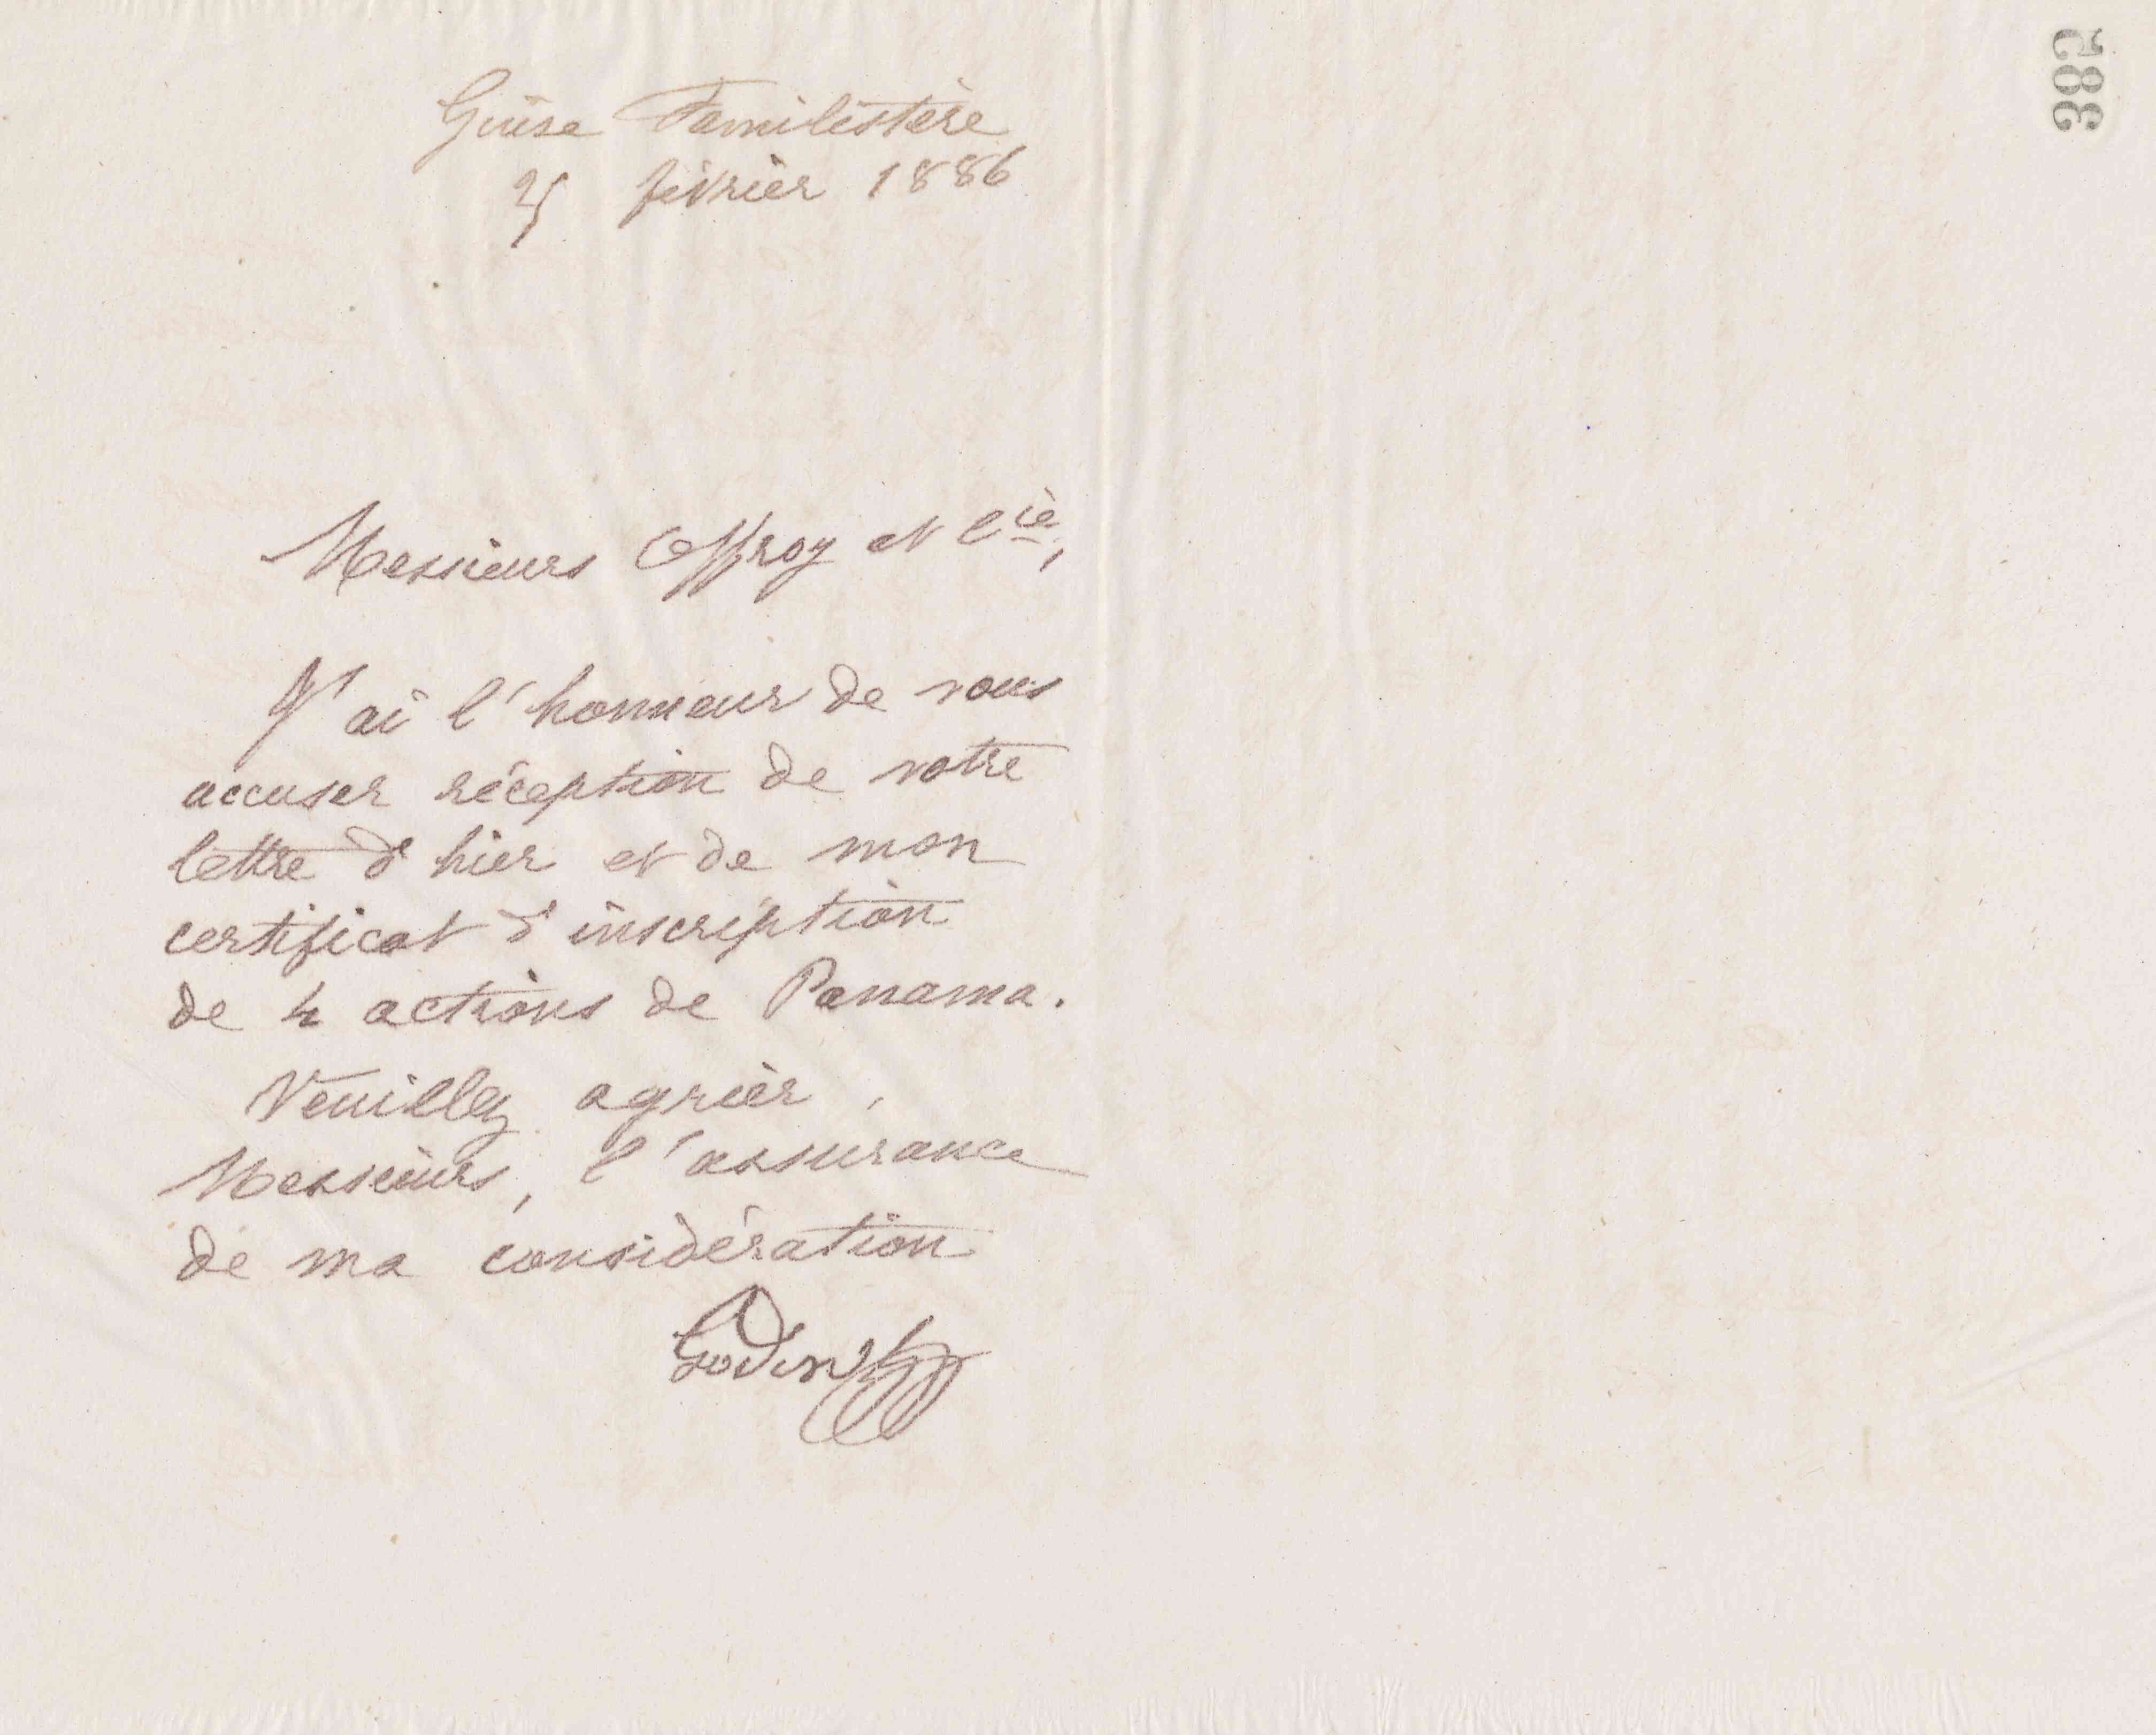 385
Guise Familistère
25 février 1886
Messieurs Offroy et Cie,
J'ai l'honneur de vous
accuser réception de votre
lettre d'hier et de mon
certificat d'inscription
de 4 actions de Panama.
Veuillez agréer,
Messieurs, l'assurance
de ma considération
Godin